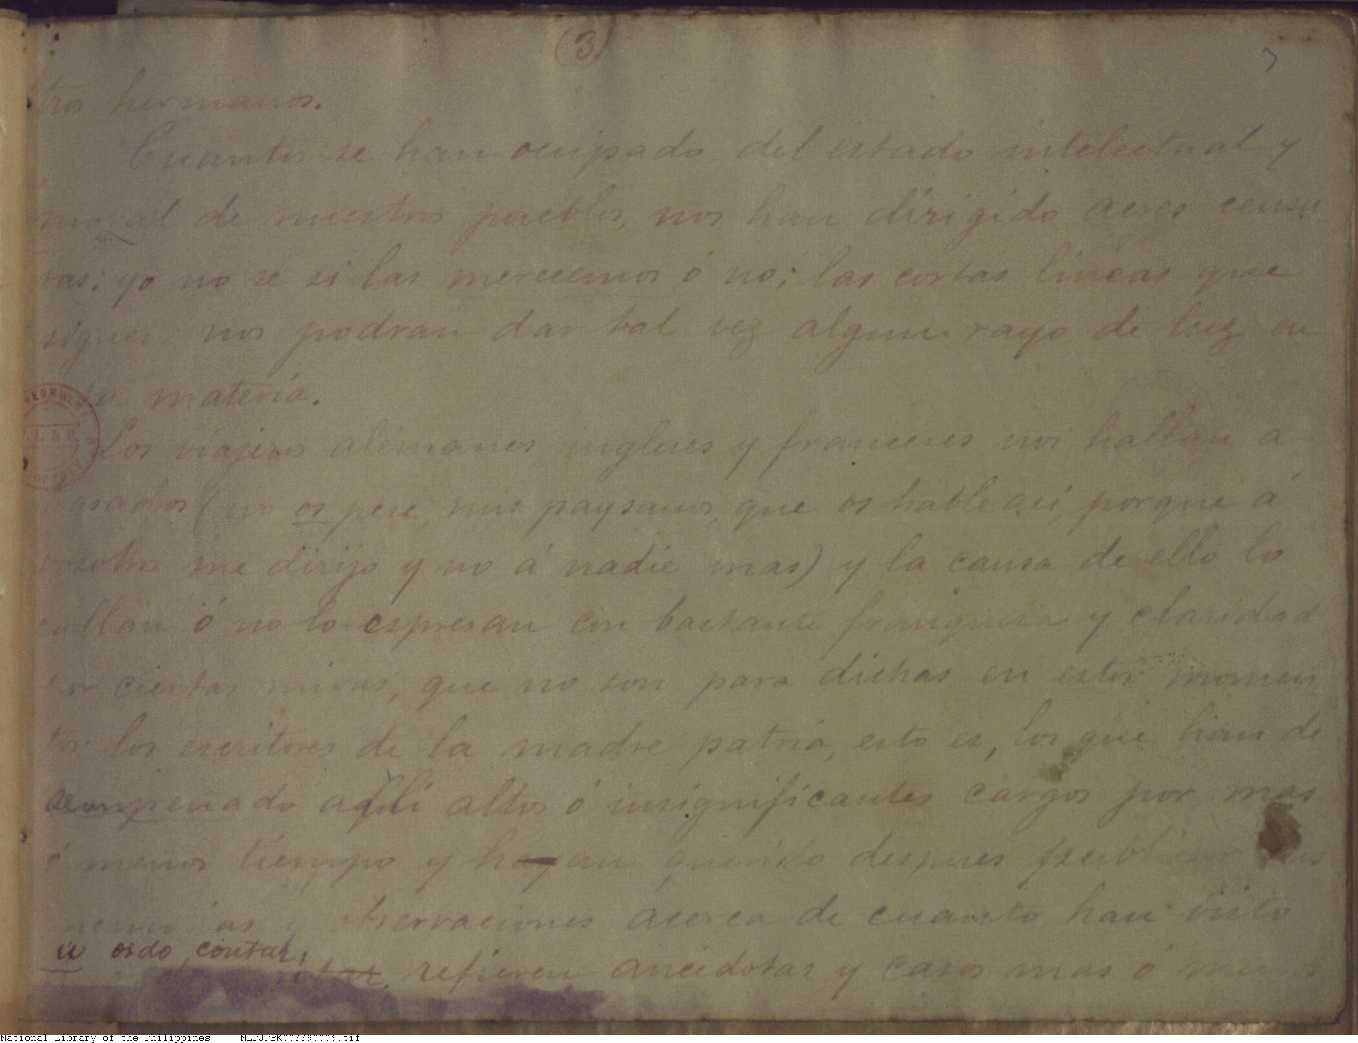 (3)
tros hermanos.
Cuantos se han ocupado del estado intelectual y
moral de nuestros pueblos, nos han dirigido acres censu
ras; yo no sé si las merecemos ó no; las cortas líneas que
siguen nos podran dar tal vez algun rayo de luz en
materia.
Los viajeros alemanes ingleses y franceses nos hallan a
trasados (no os pese, mis paysanos, que os hable así, porque á
vosotros me dirijo y no á nadie mas) y la causa de ello lo
callan ó no lo espresan con bastante franqueza y claridad
por ciertas miras, que no son para dichas en estos momen
tos: los escritores de la madre patria, esto es, los que han de
sempeñado aquí altos ó insignificantes cargos por mas
ó menos tiempo y han querido despues publicar sus
memorias y observaciones acerca de cuanto han visto
u oido contar,
refieren anécdotas y casos mas ó menos
National Library of the Philippines